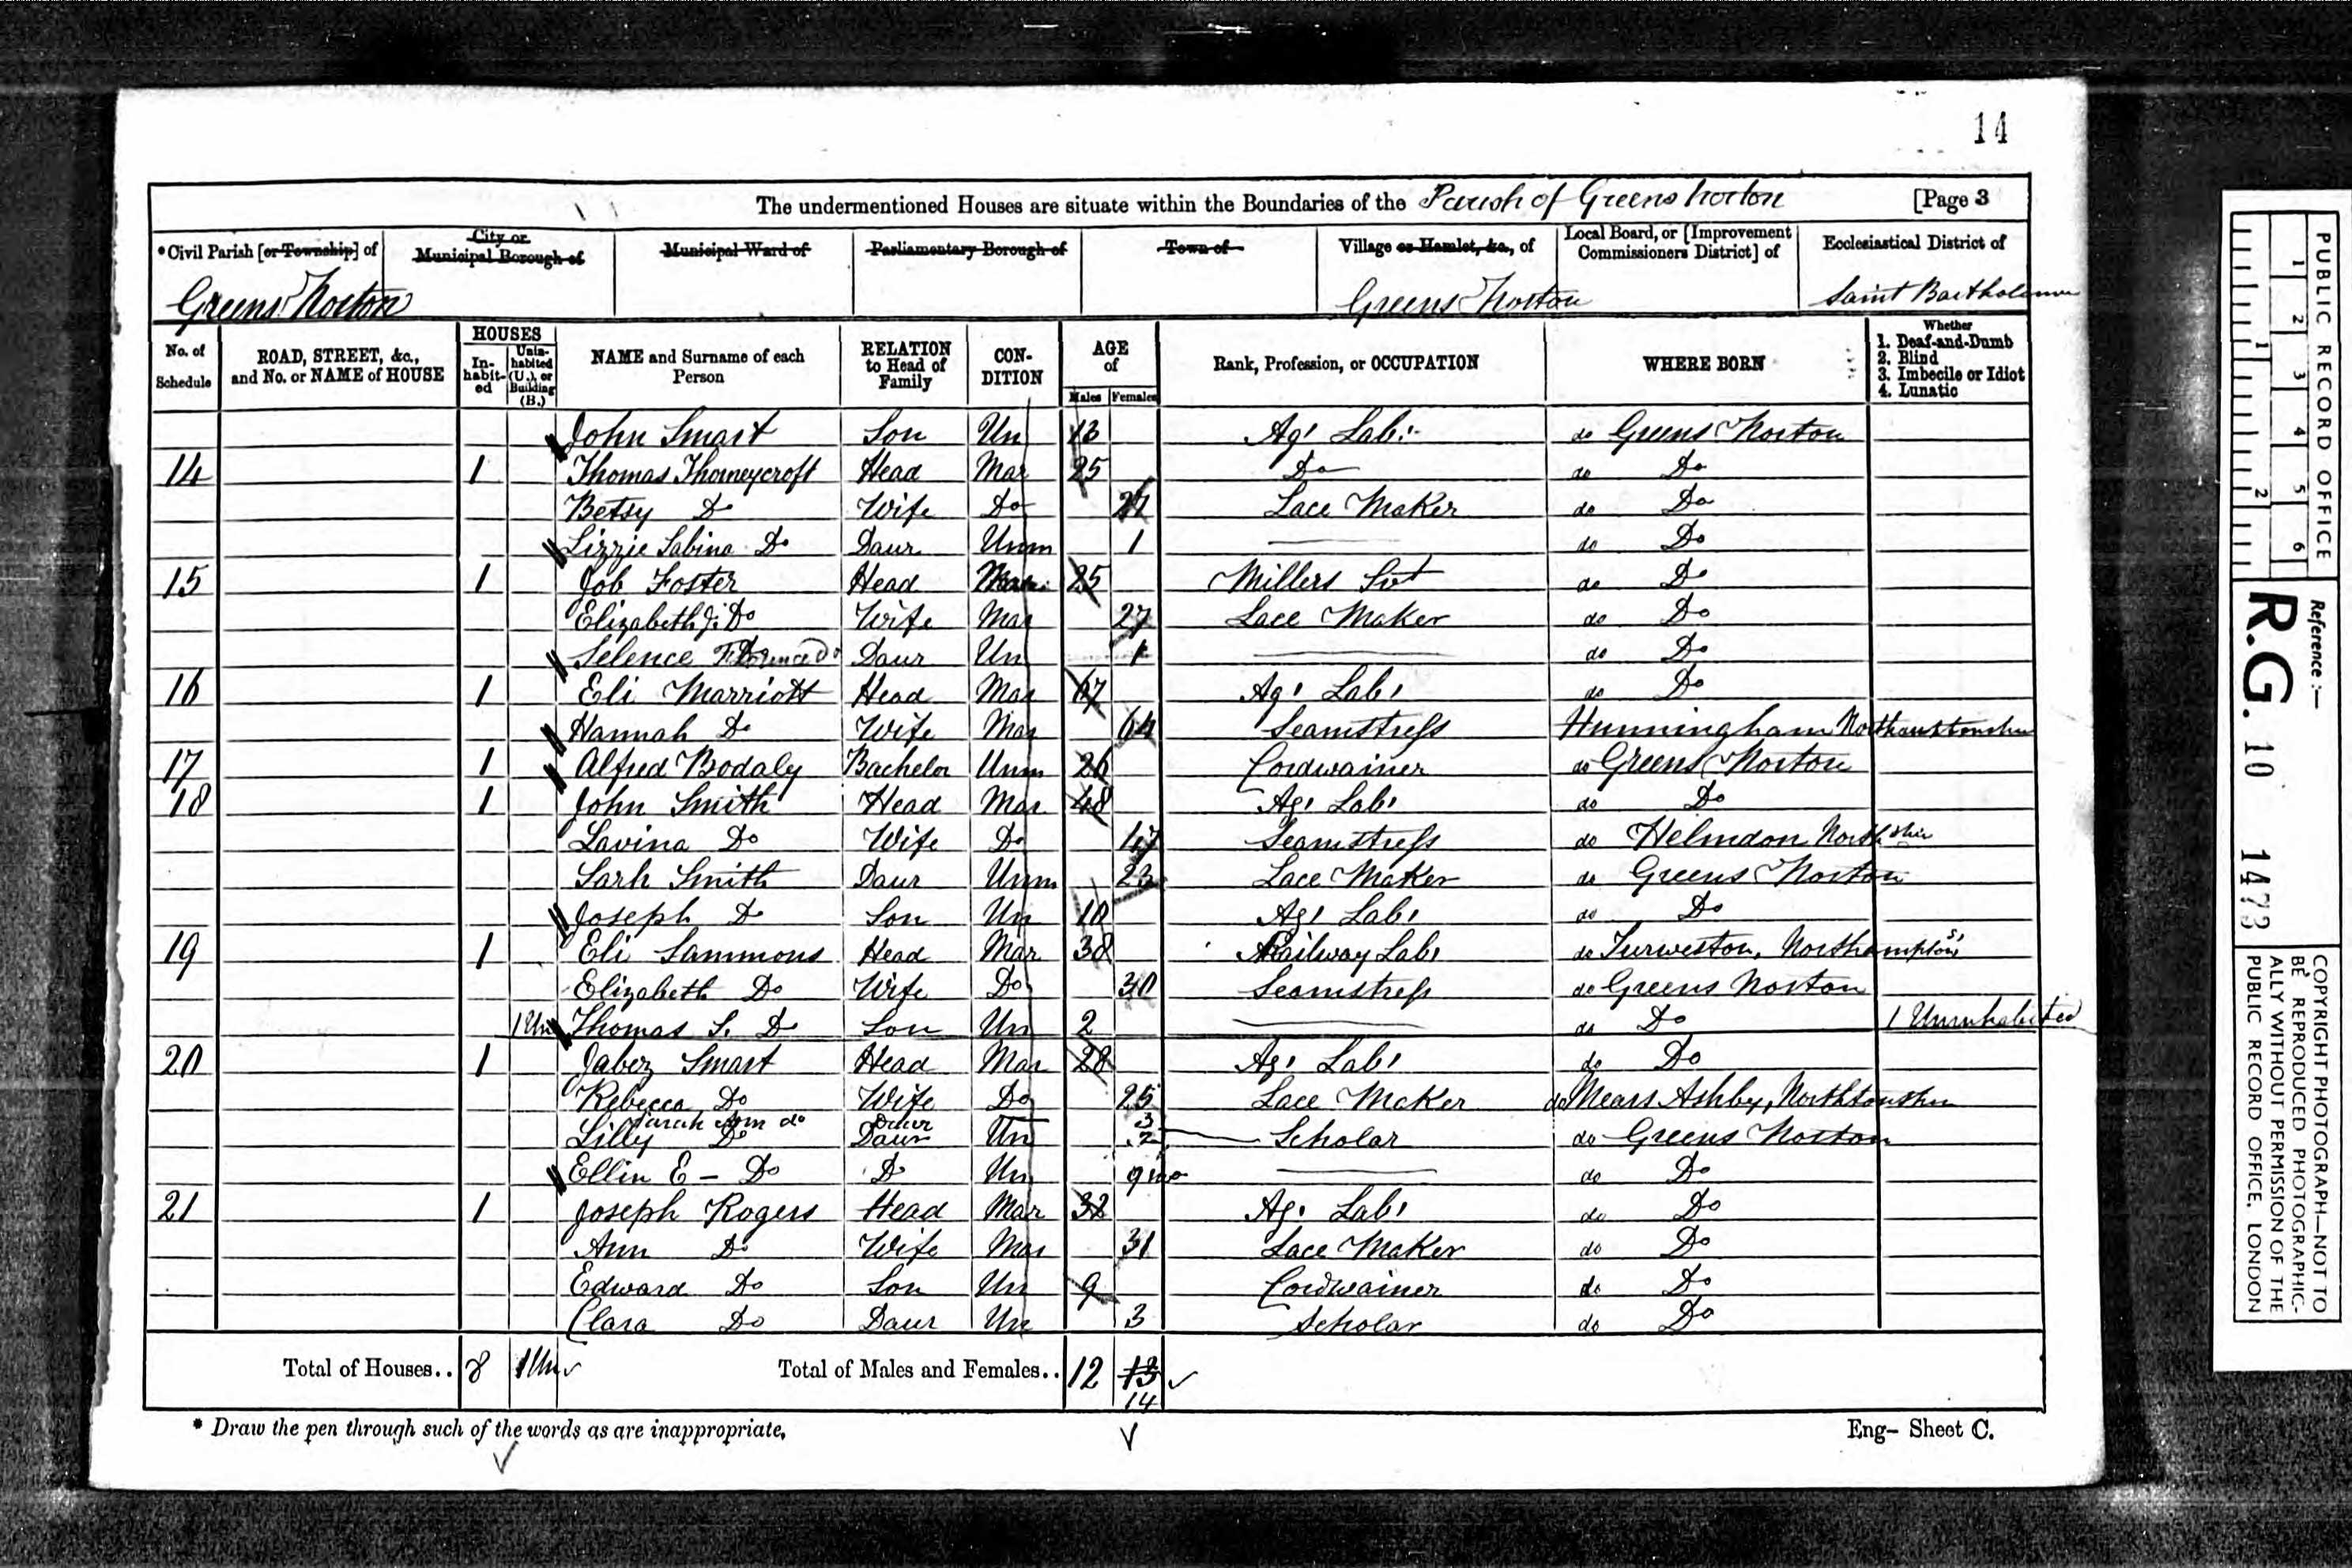 14
The undermentioned Houses are situate within the Boundaries of the Parish of Greens Norton [Page 3
*Civil Parish [or Township] of
Greens Norton
City or Municipal Borough of
Municipal Ward of
Parliamentary Borough of
Town of
Village or Hamlet, &c., of
Greens Norton
Local Board, or [Improvement Commissioners District] of
Ecclesiastical District of
Saint Bartholomew
No. of Schedule
ROAD, STREET, &c., and No. or NAME of HOUSE
HOUSES
In-habit-ed
Unin-habited (U.), or Building (B.)
NAME and Surname of each Person
RELATION to Head of Family
CON-DITION
AGE of
Males Females
Rank, Profession, or OCCUPATION
WHERE BORN
Whether
1. Deaf-and-Dumb
2. Blind
3. Imbecile or Idiot
4. Lunatic
John Smart Son Un 13 Ag' Lab' do Greens Norton
14 1 Thomas Thorneycroft Head Mar 25 Do do Do
Betsy Do Wife Do 27 Lace Maker do Do
Lizzie Sabina Do Daur Unm 1 do Do
15 1 Job Foster Head 25 Millers Svt do Do
Elizabeth J. Do Wife Mar 27 Lace Maker do Do
Selence Florence Do Daur Un 1 do Do
16 1 Eli Marriott Head Mar 67 Ag' Lab' do Do
Hannah Do Wife Mar 64 Seamstress Hunningham Northamtonshire
17 1 Alfred Bodaly Bachelor Unm 26 Cordwainer do Greens Norton
18 1 John Smith Head Mar 48 Ag' Lab' do Do
Lavina Do Wife Do 47 Seamstress do Helmdon Northshire
Sarh Smith Daur Unm 23 Lace Maker do Greens Norton
Joseph Do Son Un 10 Ag' Lab' do Do
19 1 Eli Sammons Head Mar 38 Railway Lab' do Turweston, Northamptons'
Elizabeth Do Wife Do 30 Seamstress do Greens Norton
1 Un Thomas S. Do Son Un 2 do Do 1 Uninhabited
20 1 Jabez Smart Head Mar 28 Ag' Lab' do Do
Rebecca Do Wife Do 25 Lace Maker do Mears Ashby, Northtonshire
Sarah Ann do Daur 3
Lilly Do Daur Un 2 Scholar do Greens Norton
Ellin E - Do D Un 9 mo do Do
21 1 Joseph Rogers Head Mar 32 Ag' Lab' do Do
Ann Do Wife Mar 31 Lace Maker do Do
Edward Do Son Un 9 Cordwainer do Do
Clara Do Daur Un 3 Scholar do Do
Total of Houses.. 8 1 Un Total of Males and Females.. 12 13
14
* Draw the pen through such of the words as are inappropriate.
Eng- Sheet C.
PUBLIC RECORD OFFICE
1 2 3 4 5 6
1 2
Reference :-
R.G. 10 1473
COPYRIGHT PHOTOGRAPH—NOT TO
BE REPRODUCED PHOTOGRAPHIC-
ALLY WITHOUT PERMISSION OF THE
PUBLIC RECORD OFFICE, LONDON